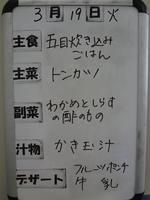 3月19日火
主食 五目炊き込み
ごはん
主菜 トンカツ
副菜 わかめとしらす
の酢のもの
汁物 かき玉汁
デザート フルーツポンチ
牛乳